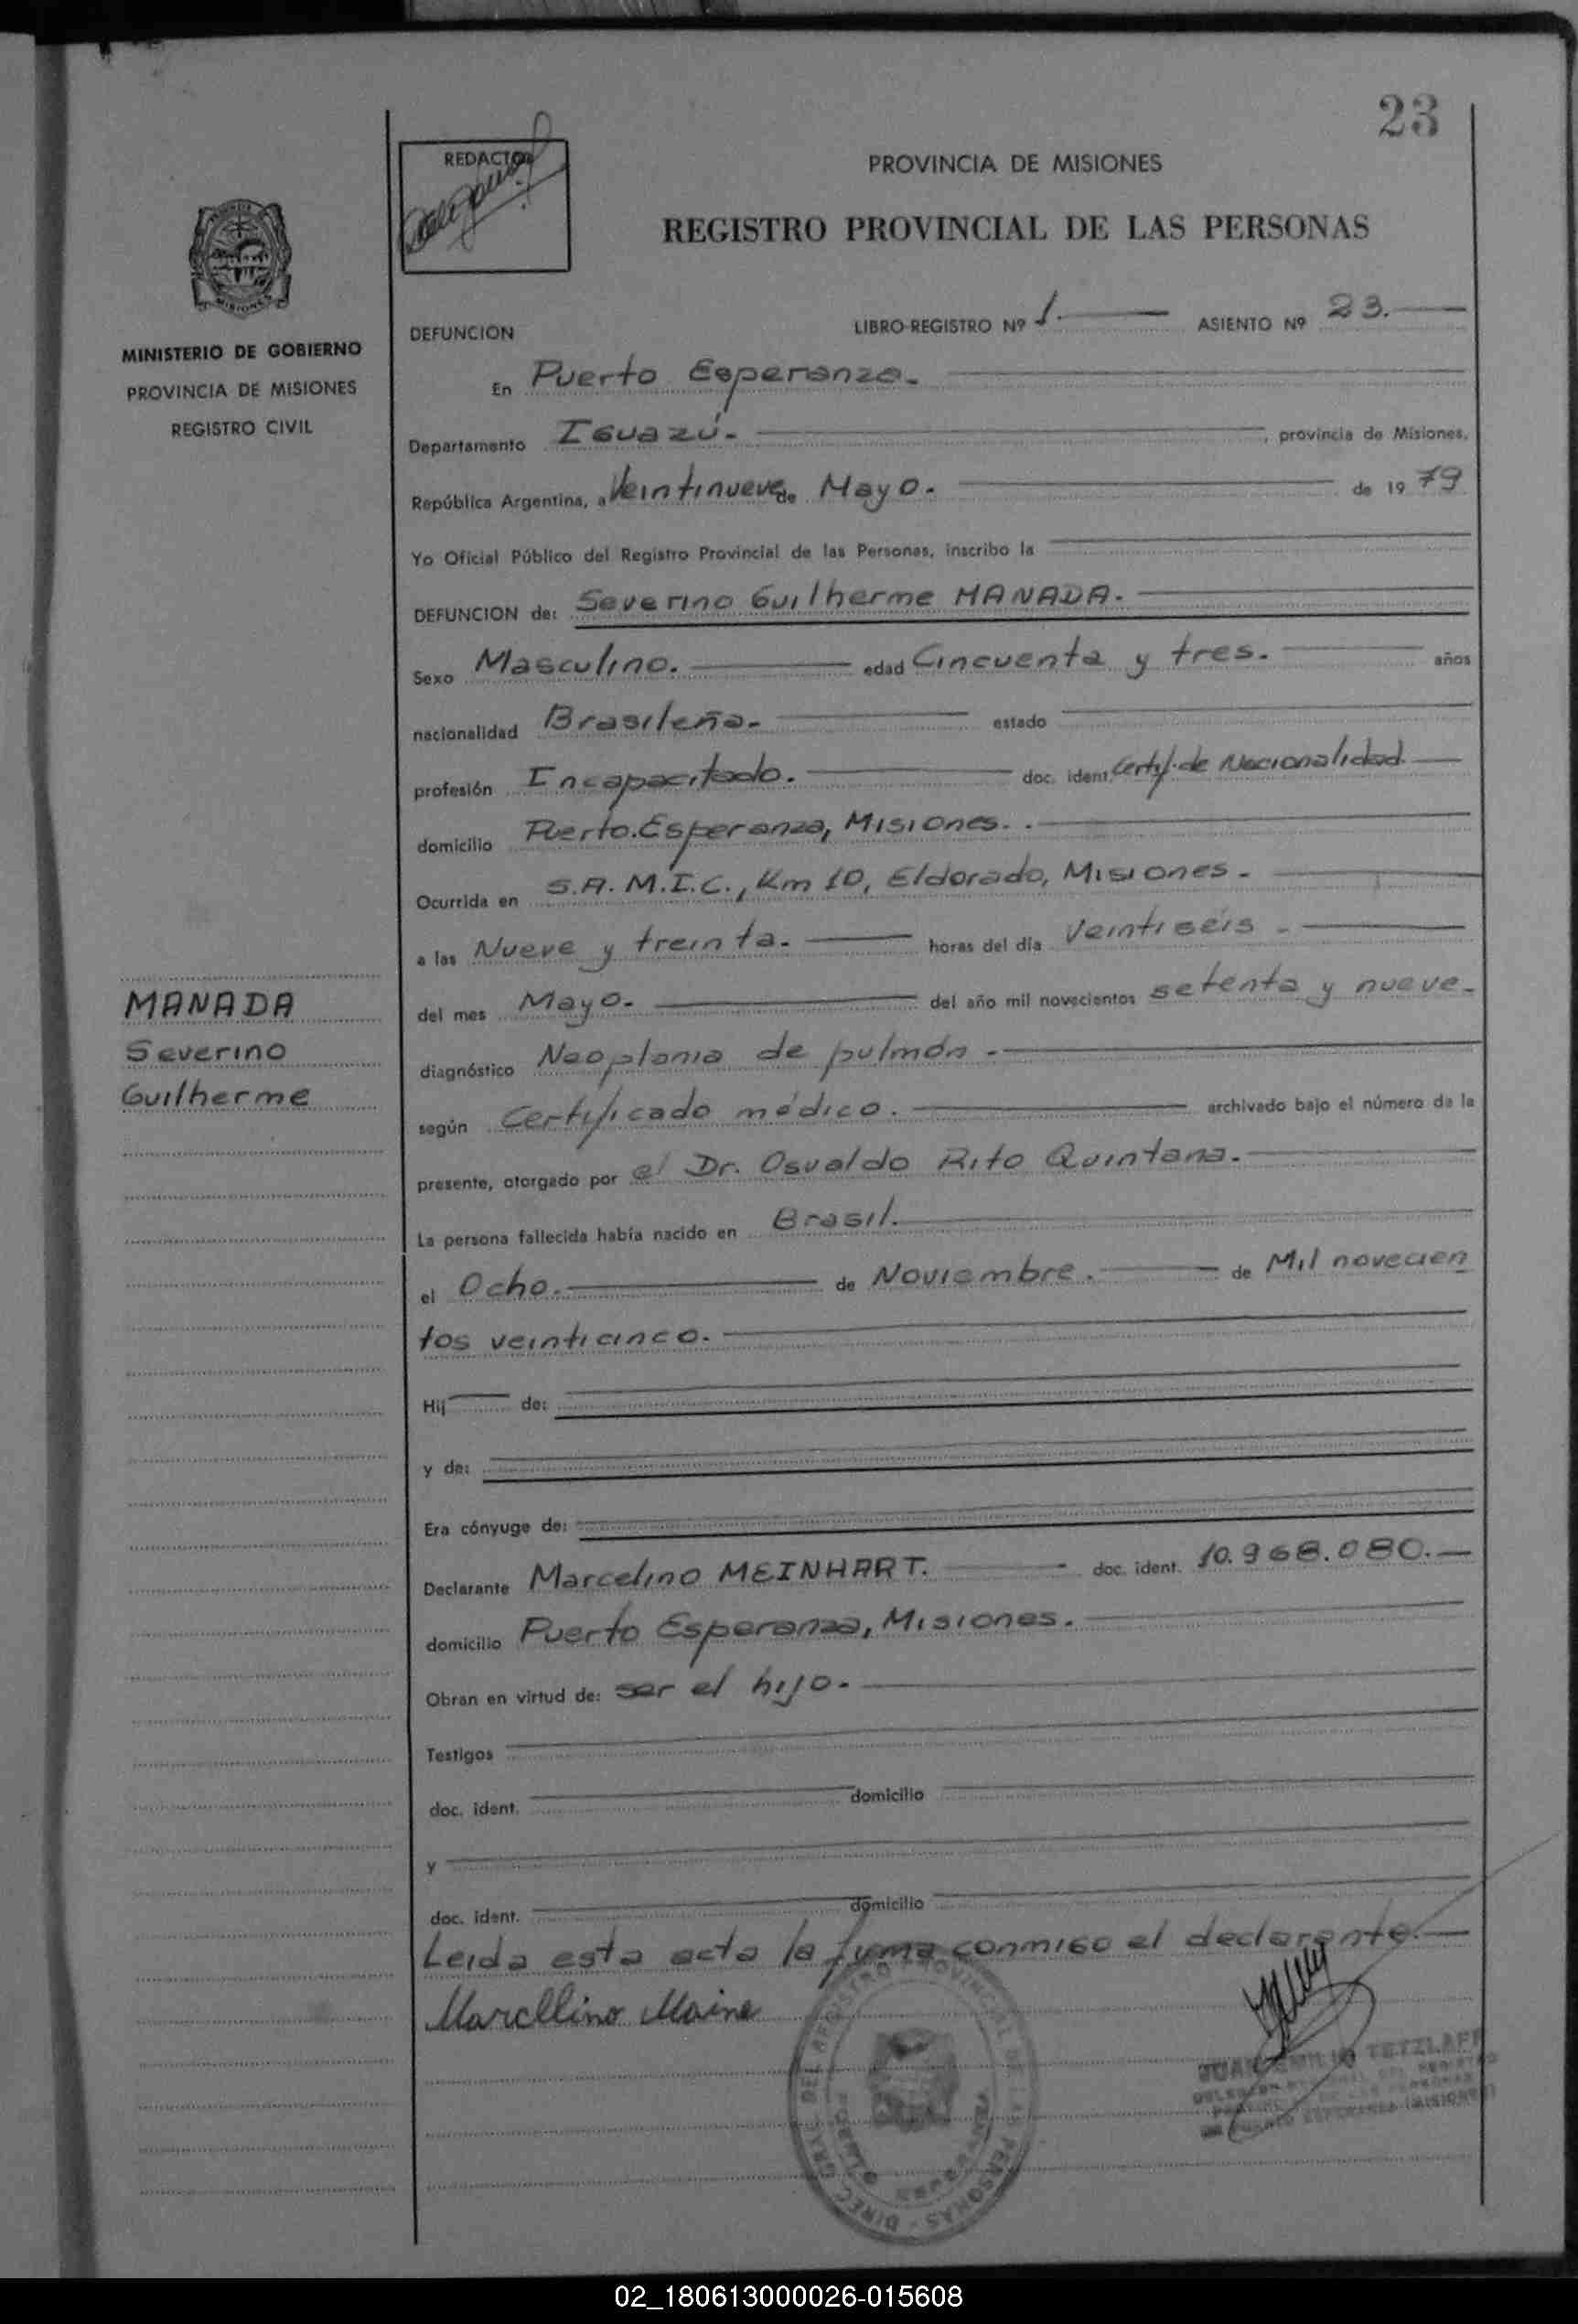 23
REDACTOR
PROVINCIA DE MISIONES
REGISTRO PROVINCIAL DE LAS PERSONAS
MISIONES
MINISTERIO DE GOBIERNO
PROVINCIA DE MISIONES
REGISTRO CIVIL
DEFUNCION LIBRO-REGISTRO Nº 1. ASIENTO Nº 23.
En Puerto Esperanza.
Departamento Iguazú. , provincia de Misiones,
República Argentina, a Veintinueve de Mayo. de 1979
Yo Oficial Público del Registro Provincial de las Personas, inscribo la
DEFUNCION de: Severino Guilherme MANADA.
Sexo Masculino. edad Cincuenta y tres. años
nacionalidad Brasileña. estado
profesión Incapacitado. doc. ident. Certif. de Nacionalidad
domicilio Puerto Esperanza, Misiones.
Ocurrida en S.A.M.I.C., Km 10, Eldorado, Misiones.
a las Nueve y treinta. horas del día Veintiséis.
del mes Mayo. del año mil novecientos setenta y nueve.
diagnóstico Neoplania de pulmón.
según Certificado médico. archivado bajo el número de la
presente, otorgado por el Dr. Osvaldo Rito Quintana.
La persona fallecida había nacido en Brasil.
el Ocho. de Noviembre. de Mil novecien
tos veinticinco.
Hij de:
y de:
Era cónyuge de:
Declarante Marcelino MEINHART. doc. ident. 10.968.080.
domicilio Puerto Esperanza, Misiones.
Obran en virtud de: ser el hijo.
Testigos
doc. ident. domicilio
y
doc. ident. domicilio
Leida esta acta la firma conmigo el declarante.
Marcllino Maine
MANADA
Severino
Guilherme
REGISTRO PROVINCIAL DE LAS PERSONAS - DIREC. GRAL. DEL
JUAN EMILIO TETZLAFF
PUERTO ESPERANZA (MISIONES)
02_180613000026-015608